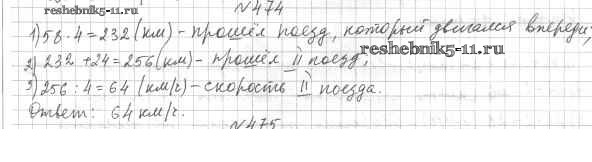 reshebnik5-11.ru №474
1) 58 · 4 = 232 (км) - прошёл поезд, который двигался впереди;
reshebnik5-11.ru
2) 232 + 24 = 256 (км) - прошёл II поезд,
3) 256 : 4 = 64 (км/г) - скорость II поезда.
Ответ: 64 км/г.
№475